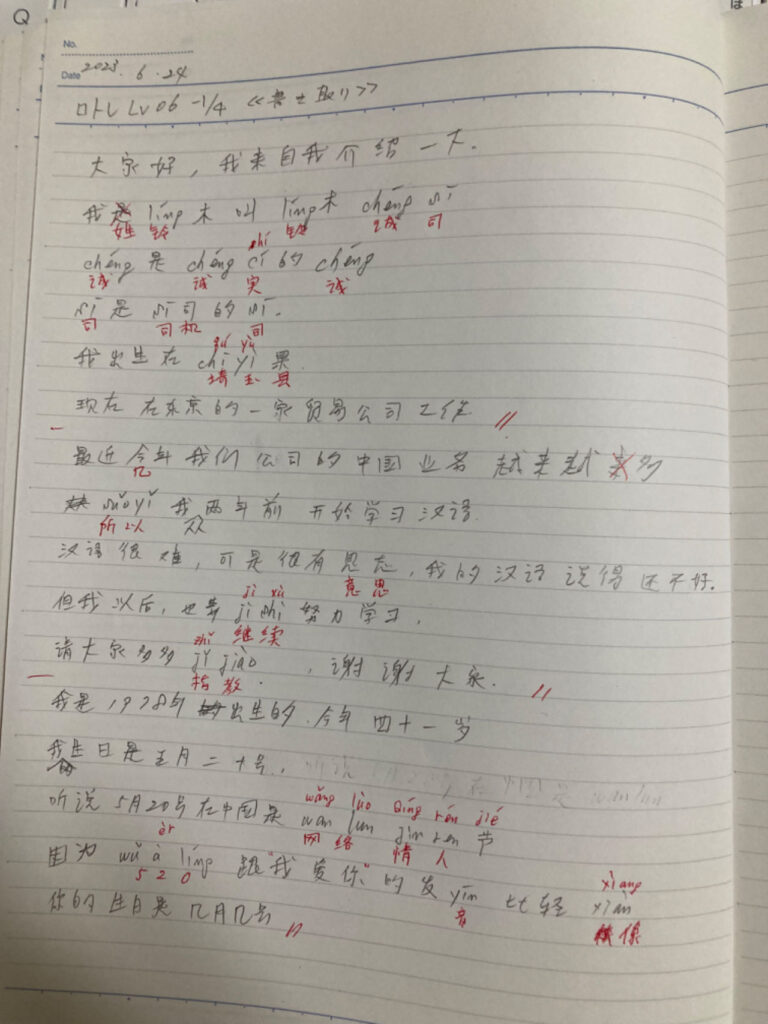 No.
Date 2023. 6. 24
ロトし Lv 06 -1/4 《書き取り》
大家好，我来自我介绍一下.
我是 líng 木 叫 líng 木 chéng sī
姓 铃 铃 诚 司
shí
chéng 是 chéng cí 的 chéng
诚 诚 实 诚
sī 是 sī 司 的 sī.
司 司 机 司
yù
我出生在 chí yì 果
埼 玉 县
现在 在东京的一家贸易公司工作
最近 今年 我们公司的中国业务 越来越来多
几
suǒ yǐ 我两年前 开始学习汉语
所以 从
汉语很难，可是很有思志，我的汉语说得还不好.
意思
jì xù
但我以后，也要 jì shì 努力学习，
继续
zhǐ
请大家多多 jǐ jiào ，谢谢大家.
指教
我是1978年出生的. 今年四十一岁
我生日是五月二十号，
的
听说5月20号在中国是 wan lun jin ren 节
wǎng luò Qíng rén jié
网络 情人
èr
因为 wǔ à líng 跟“我爱你”的发 yīn 比轻 xiàn
5 2 0 音
xiang
像
你的生日是几月几号